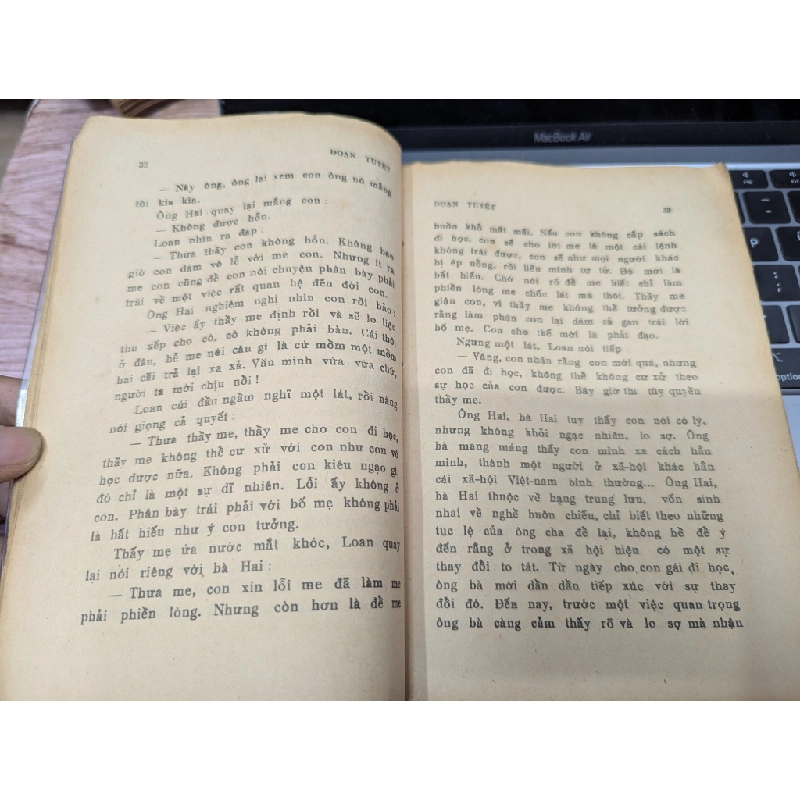 32
ĐOẠN TUYỆT
— Này ông, ông lại xem con ông nó mắng
tôi kia kìa.
Ông Hai quay lại mắng con :
— Không được hỗn.
Loan nhìn ra đáp:
— Thưa thầy con không hỗn. Không bao
giờ con dám vô lễ với me con. Nhưng ít ra
me con cũng để con nói chuyện phân bày phải
trái về một việc rất quan hệ đến đời con.
Ông Hai nghiêm nghị nhìn con rồi bảo:
— Việc ấy thầy me định rồi và sẽ lo liệu
thu xếp cho cô, cô không phải bàn. Cái thó
ở đâu, hễ me nói câu gì là cứ mồm một mồm
hai cãi trả lại xa xả. Văn minh vừa vừa chứ,
người ta mới chịu nổi !
Loan cúi đầu ngẫm nghĩ một lát, rồi nàng
nói giọng cả quyết :
— Thưa thầy me, thầy me cho con đi học,
thầy me không thể cư xử với con như con vô
học được nữa. Không phải con kiêu ngạo gì,
đó chỉ là một sự dĩ nhiên. Lỗi ấy không ở
con. Phân bày trái phải với bố mẹ không phải
là bất hiếu như ý con tưởng.
Thấy mẹ ứa nước mắt khóc, Loan quay
lại nói riêng với bà Hai :
— Thưa me, con xin lỗi me đã làm me
phải phiền lòng. Nhưng còn hơn là để me
MacBook Air
ĐOẠN TUYỆT
33
buồn khổ mãi mãi. Nếu con không cắp sách
đi học, con sẽ cho lời me là một cái lệnh
không trái được, con sẽ như mọi người khác
bị ép nẳng, rồi liều mình tự tử. Đó mới là
bất hiếu. Chớ nói rõ để me biết chỉ làm
phiền lòng me chốc lát mà thôi. Thầy me
giận con, vì thầy me không thể không được
rằng làm phận con lại dám cả gan trái lời
bố mẹ. Con cho thế mới là phải đạo.
Ngừng một lát, Loan nói tiếp
— Vâng, con nhận rằng con mới quá, nhưng
con đã đi học, không thể không cư xử theo
sự học của con được. Bây giờ thì tùy quyền
thầy me.
Ông Hai, bà Hai tuy thấy con nói có lý,
nhưng không khỏi ngạc nhiên, lo sợ. Ông
bà mang máng thấy con mình xa cách hẳn
mình, thành một người ở xã-hội khác hẳn
cái xã-hội Việt-nam bình thường... Ông Hai,
bà Hai thuộc về hạng trung lưu, vốn sinh
nhai về nghề buôn chiếu, chỉ biết theo những
tục lệ của ông cha để lại, không hề để ý
đến rằng ở trong xã hội hiện có một sự
thay đổi to tát. Từ ngày cho con gái đi học,
ông bà mới dần dần tiếp xúc với sự thay
đổi đó. Đến nay, trước một việc quan trọng
ông bà càng cảm thấy rõ và lo sợ mà nhận